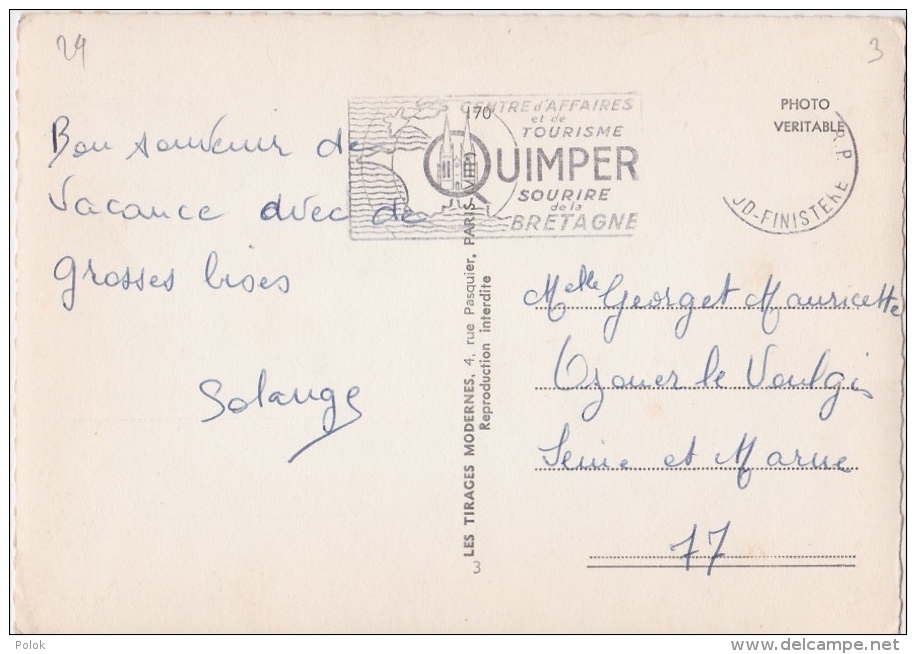 29
3
Bon souvenir de
Vacance avec de
grosses bises
Solange
170
CENTRE d'AFFAIRES
et de
TOURISME
QUIMPER
SOURIRE
de la
BRETAGNE
PHOTO
VERITABLE
R.P.
UD-FINISTERE
LES TIRAGES MODERNES, 4, rue Pasquier, PARIS-VIIIe
Reproduction interdite
3
Melle Georget Mauricette
Ozouer le Voulgis
Seine et Marne
77
Polok
delcampe.net